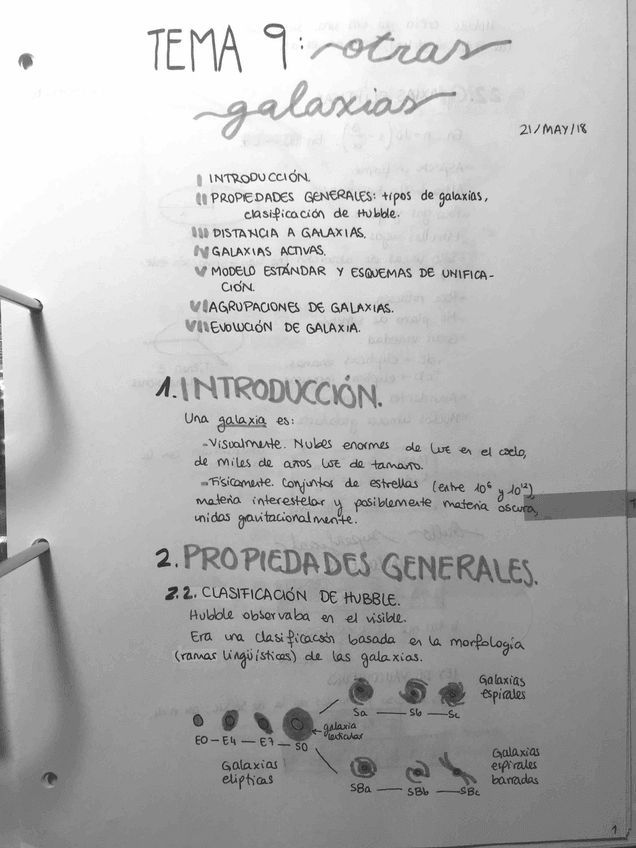 TEMA 9: otras
galaxias
21/MAY/18
I INTRODUCCIÓN.
II PROPIEDADES GENERALES: tipos de galaxias,
clasificación de Hubble.
III DISTANCIA A GALAXIAS.
IV GALAXIAS ACTIVAS.
V MODELO ESTÁNDAR Y ESQUEMAS DE UNIFICA-
CIÓN.
VI AGRUPACIONES DE GALAXIAS.
VII EVOLUCIÓN DE GALAXIA.
1. INTRODUCCIÓN.
Una galaxia es:
- Visualmente. Nubes enormes de luz en el cielo,
de miles de años luz de tamaño.
- Físicamente. Conjuntos de estrellas (entre 10⁶ y 10¹²),
materia interestelar y posiblemente materia oscura,
unidas gravitacionalmente.
2. PROPIEDADES GENERALES.
2.2. CLASIFICACIÓN DE HUBBLE.
Hubble observaba en el visible.
Era una clasificación basada en la morfología
(ramas lingüísticas) de las galaxias.
Sa — Sb — Sc
Galaxias
espirales
E0 — E4 — E7 — S0
galaxia
lenticular
Galaxias
elípticas
SBa — SBb — SBc
Galaxias
espirales
barradas
1